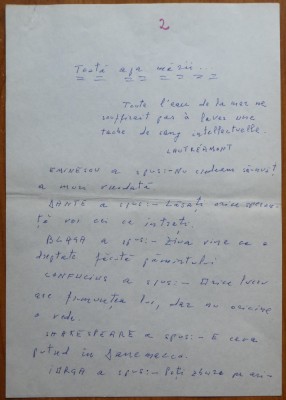 2
Toată apa mării.
Toute l'eau de la mer ne
suffirait pas à laver une
tache de sang intellectuelle.
LAUTRÉAMONT
EMINESCU a spus: – Nu credeam să-nvăț
a muri vreodată
DANTE a spus: – Lăsați orice speran-
ță voi cei ce intrați.
BLAGA a spus: – Ziua vine ca o
dreptate făcută pământului
CONFUCIUS a spus: – Orice lucru
are frumusețea lui, dar nu oricine
o vede.
SHAKESPEARE a spus: – E ceva
putred în Danemarca.
IORGA a spus: – Poți